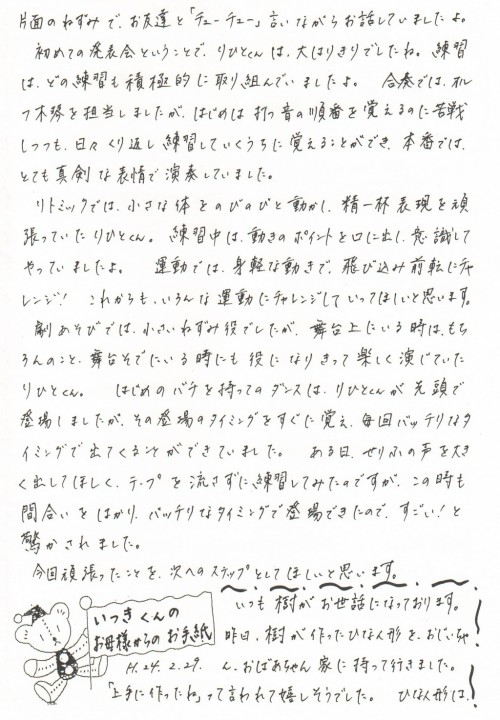 片面のねずみで、お友達と「チューチュー」言いながらお話していましたよ。
初めての発表会ということで、りひとくんは、大はりきりでしたね。練習
は、どの練習も積極的に取り組んでいましたよ。合奏では、オル
フ木琴を担当しましたが、はじめは打つ音の順番を覚えるのに苦戦
しつつも、日々くり返し練習していくうちに覚えることができ、本番では、
とても真剣な表情で演奏していました。
リトミックでは、小さな体をのびのびと動かし、精一杯表現を頑
張っていたりひとくん。練習中は、動きのポイントを口に出し、意識して
やっていましたよ。運動では、身軽な動きで、飛び込み前転にチャ
レンジ！これからも、いろんな運動にチャレンジしていってほしいと思います。
劇あそびでは、小さいねずみ役でしたが、舞台上にいる時は、もち
ろんのこと、舞台そでにいる時にも役になりきって楽しく演じていた
りひとくん。はじめのバチを持ってのダンスは、りひとくんが先頭で
登場しましたが、その登場のタイミングをすぐに覚え、毎回バッチリなタ
イミングで出てくることができていました。ある日、せりふの声を大き
く出してほしく、テープを流さずに練習してみたのですが、この時も
間合いをはかり、バッチリなタイミングで登場できたので、すごい！と
驚かされました。
今回頑張ったことを、次へのステップとしてほしいと思います。
いつきくんの
お母様からのお手紙
H.24.2.29.
いつも樹がお世話になっております。
昨日、樹が作ったひな人形を、おじいちゃ
ん、おばあちゃん家に持って行きました。
「上手に作ったね」って言われて嬉しそうでした。ひな人形は、